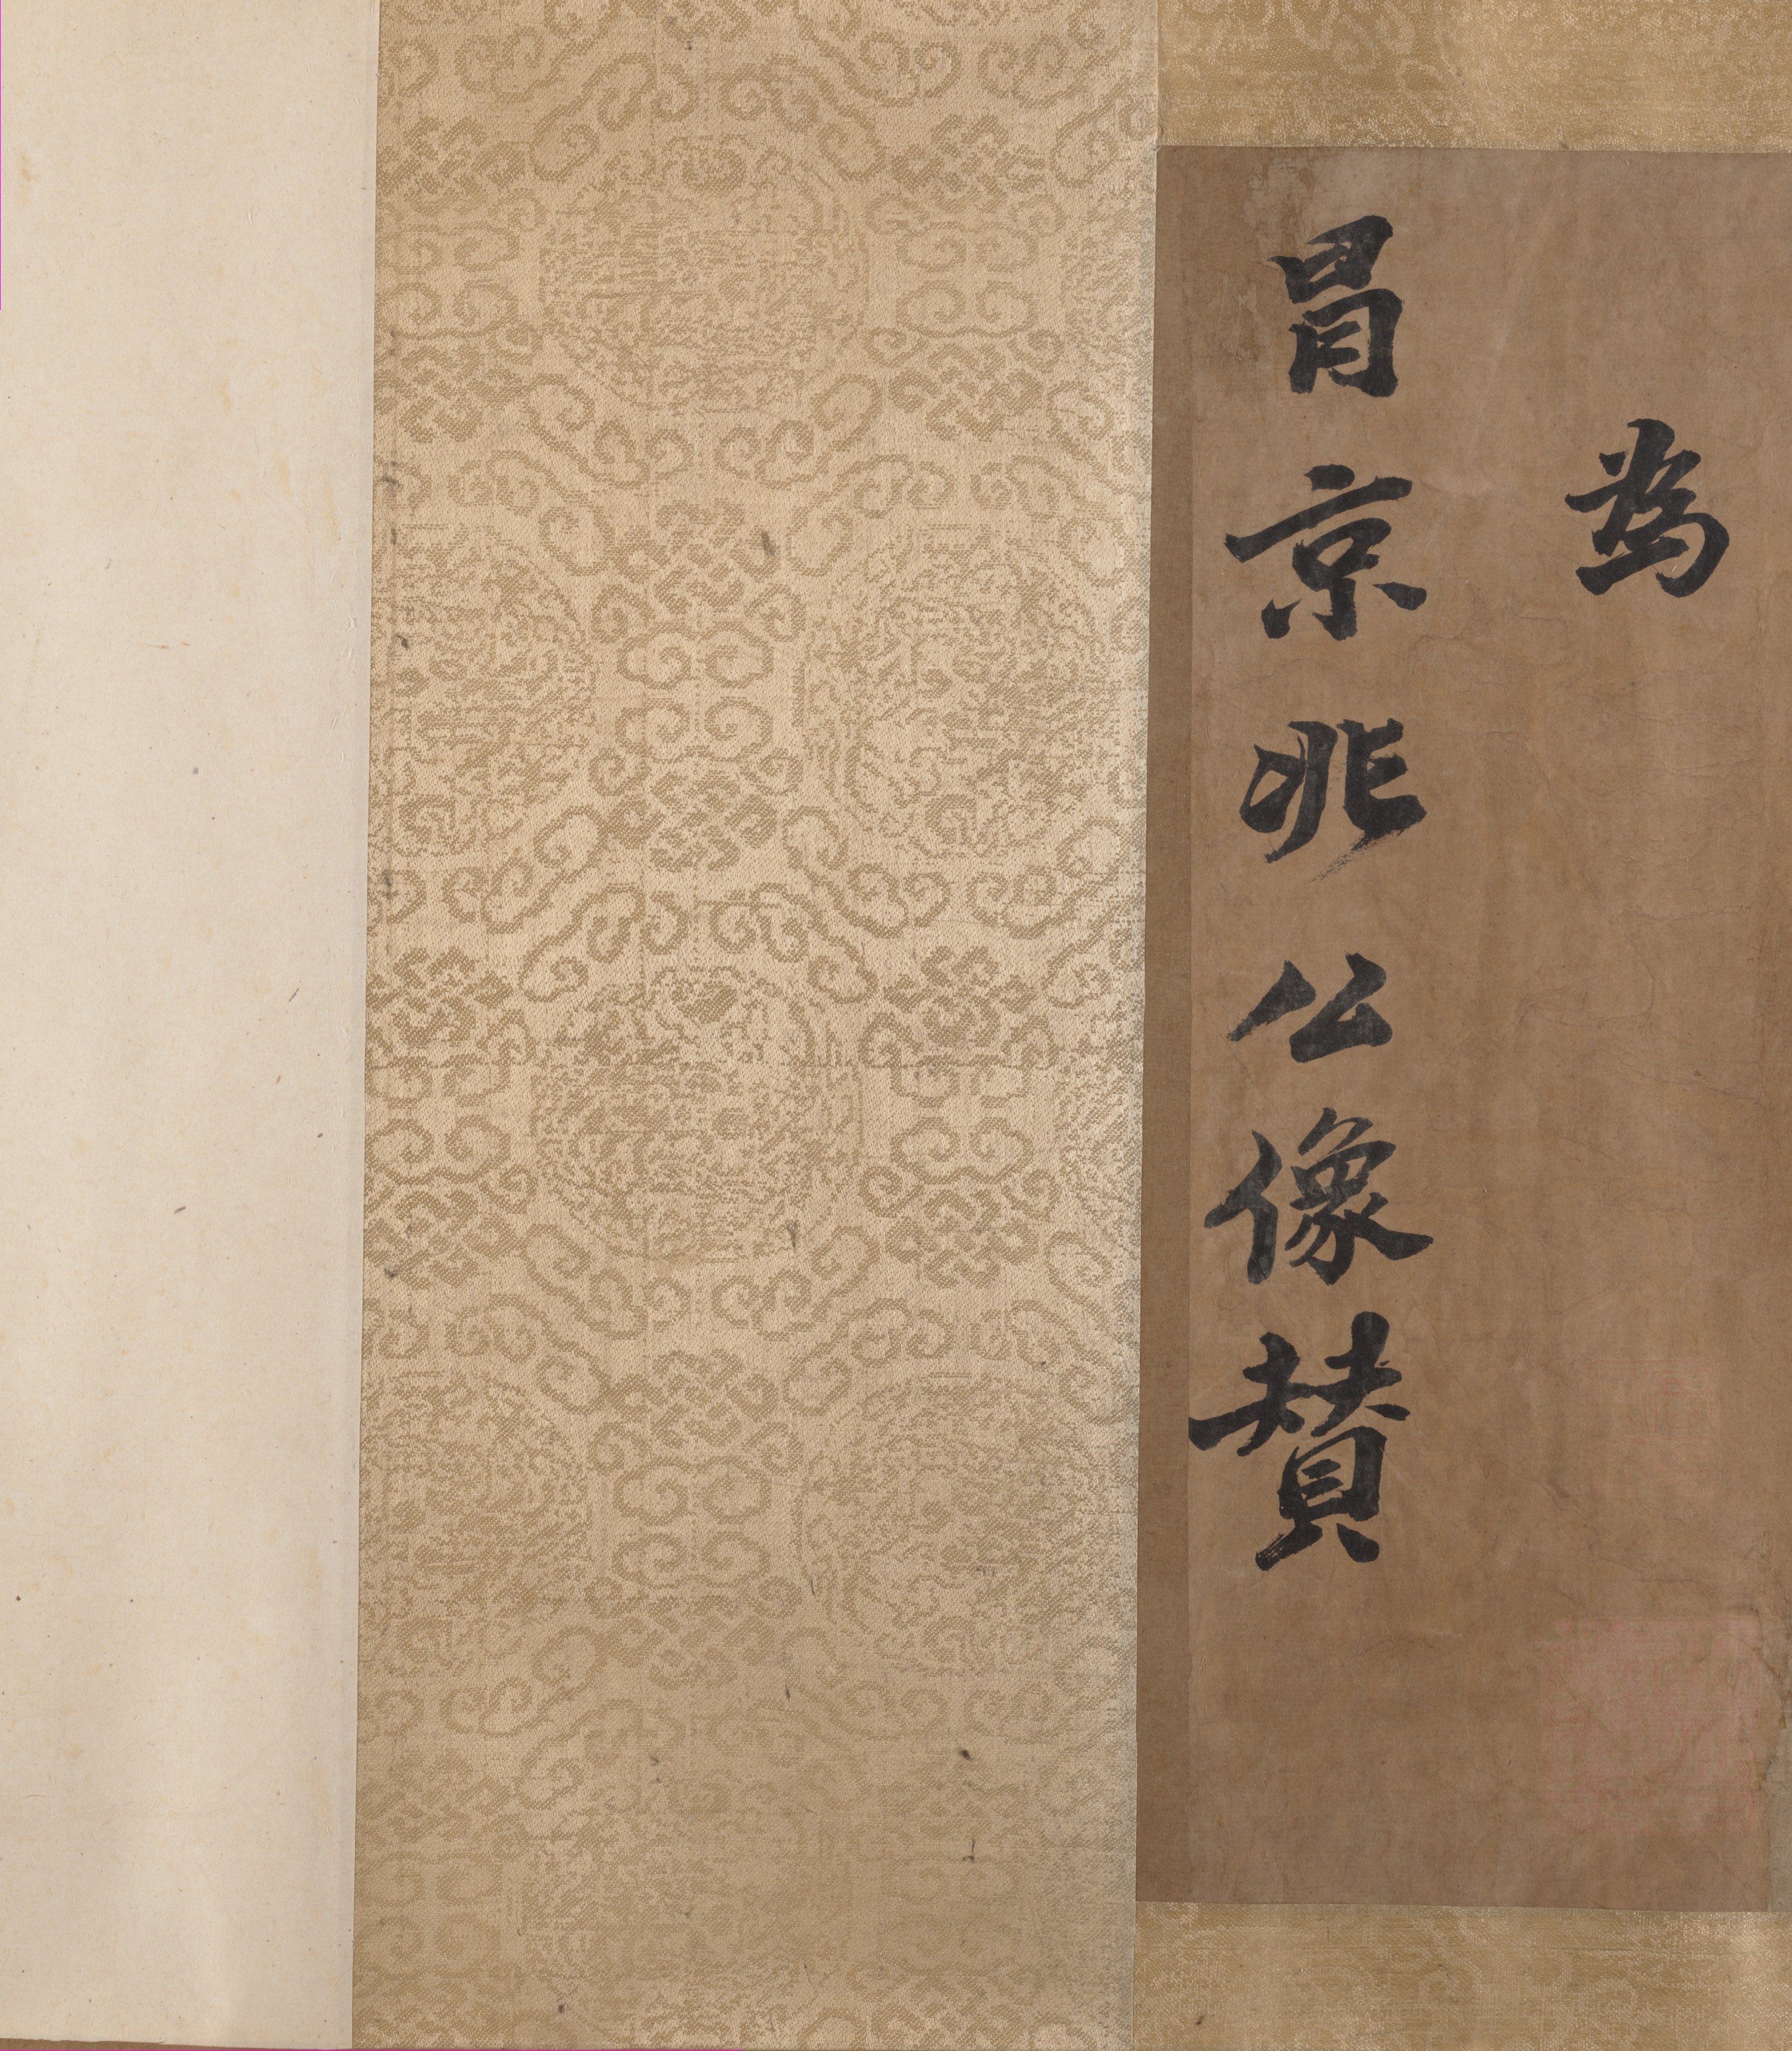 為
冐京兆公像賛